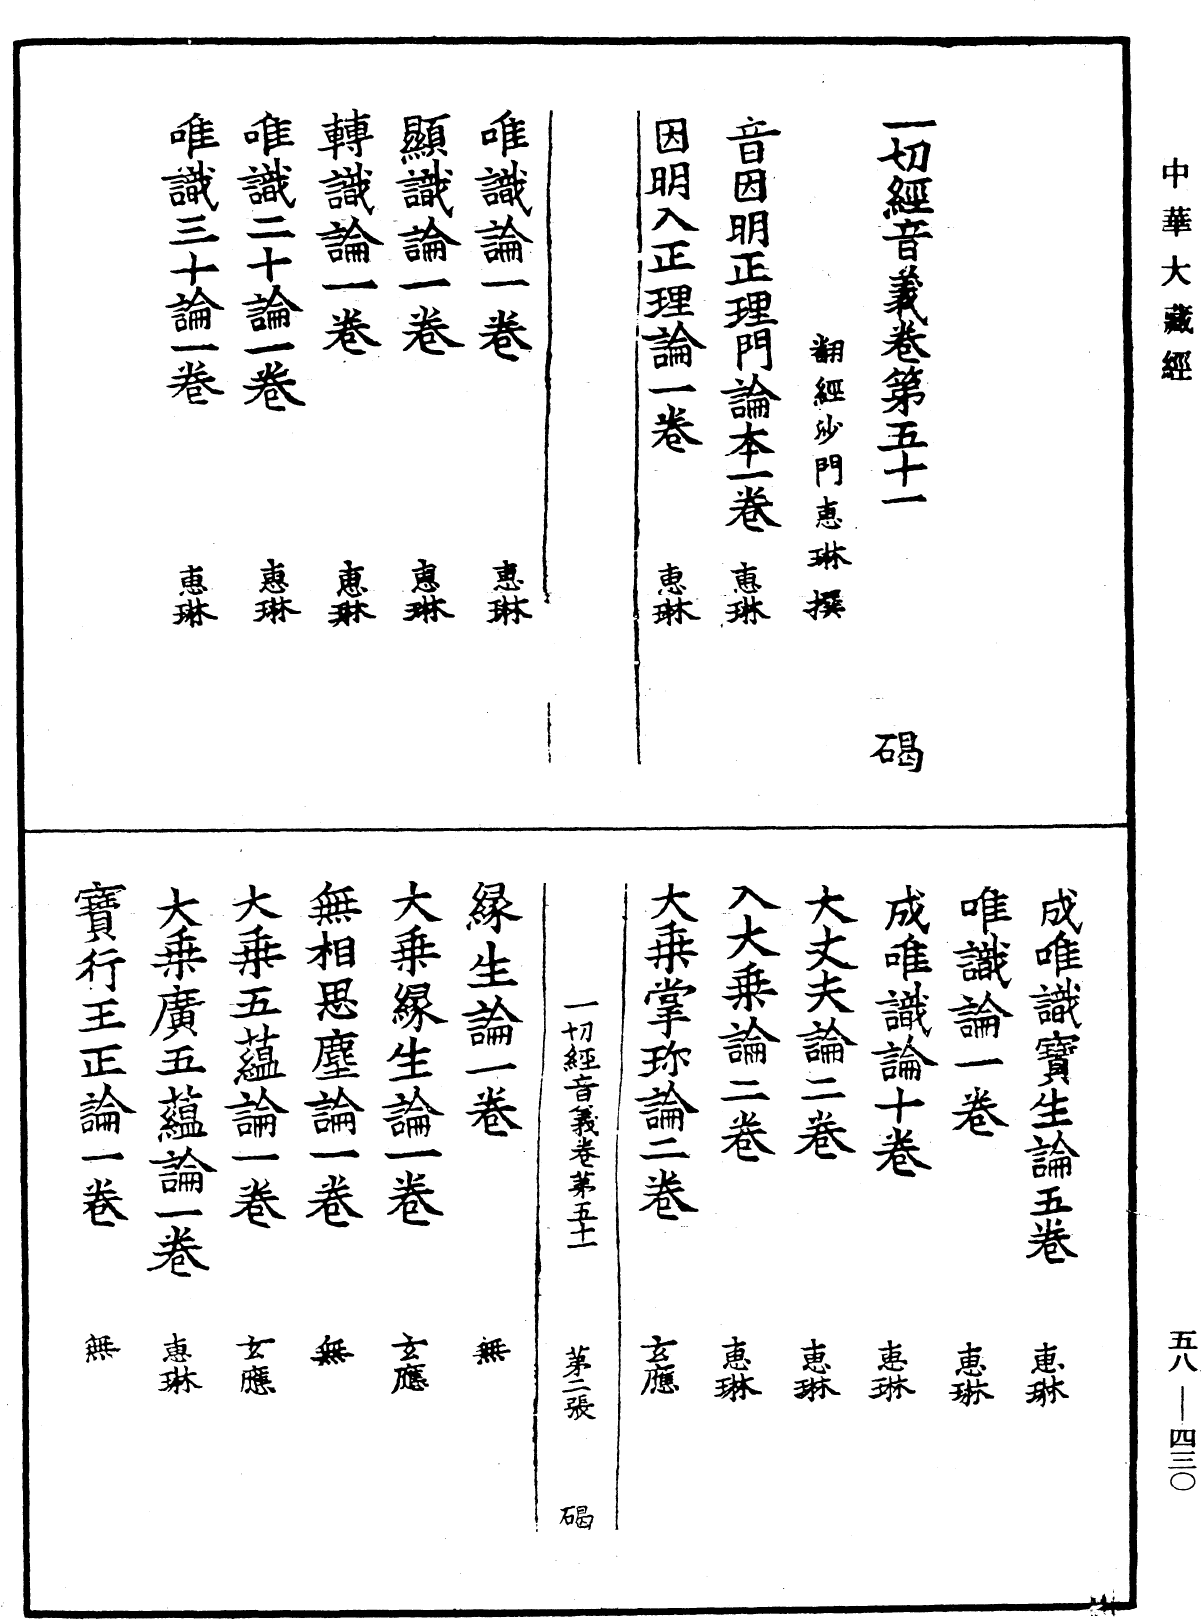 中華大藏經
一切經音義卷第五十一 碣
翻經沙門惠琳撰
音因明正理門論本一卷 惠琳
因明入正理論一卷 惠琳
唯識論一卷 惠琳
顯識論一卷 惠琳
轉識論一卷 惠琳
唯識二十論一卷 惠琳
唯識三十論一卷 惠琳
成唯識寶生論五卷 惠琳
唯識論一卷 惠琳
成唯識論十卷 惠琳
大丈夫論二卷 惠琳
入大乗論二卷 惠琳
大乗掌珎論二卷 玄應
一切經音義卷第五十一 第二張 碣
縁生論一卷 無
大乗縁生論一卷 玄應
無相思塵論一卷 無
大乗五蘊論一卷 玄應
大乗廣五蘊論一卷 惠琳
寶行王正論一卷 無
五八—四三〇